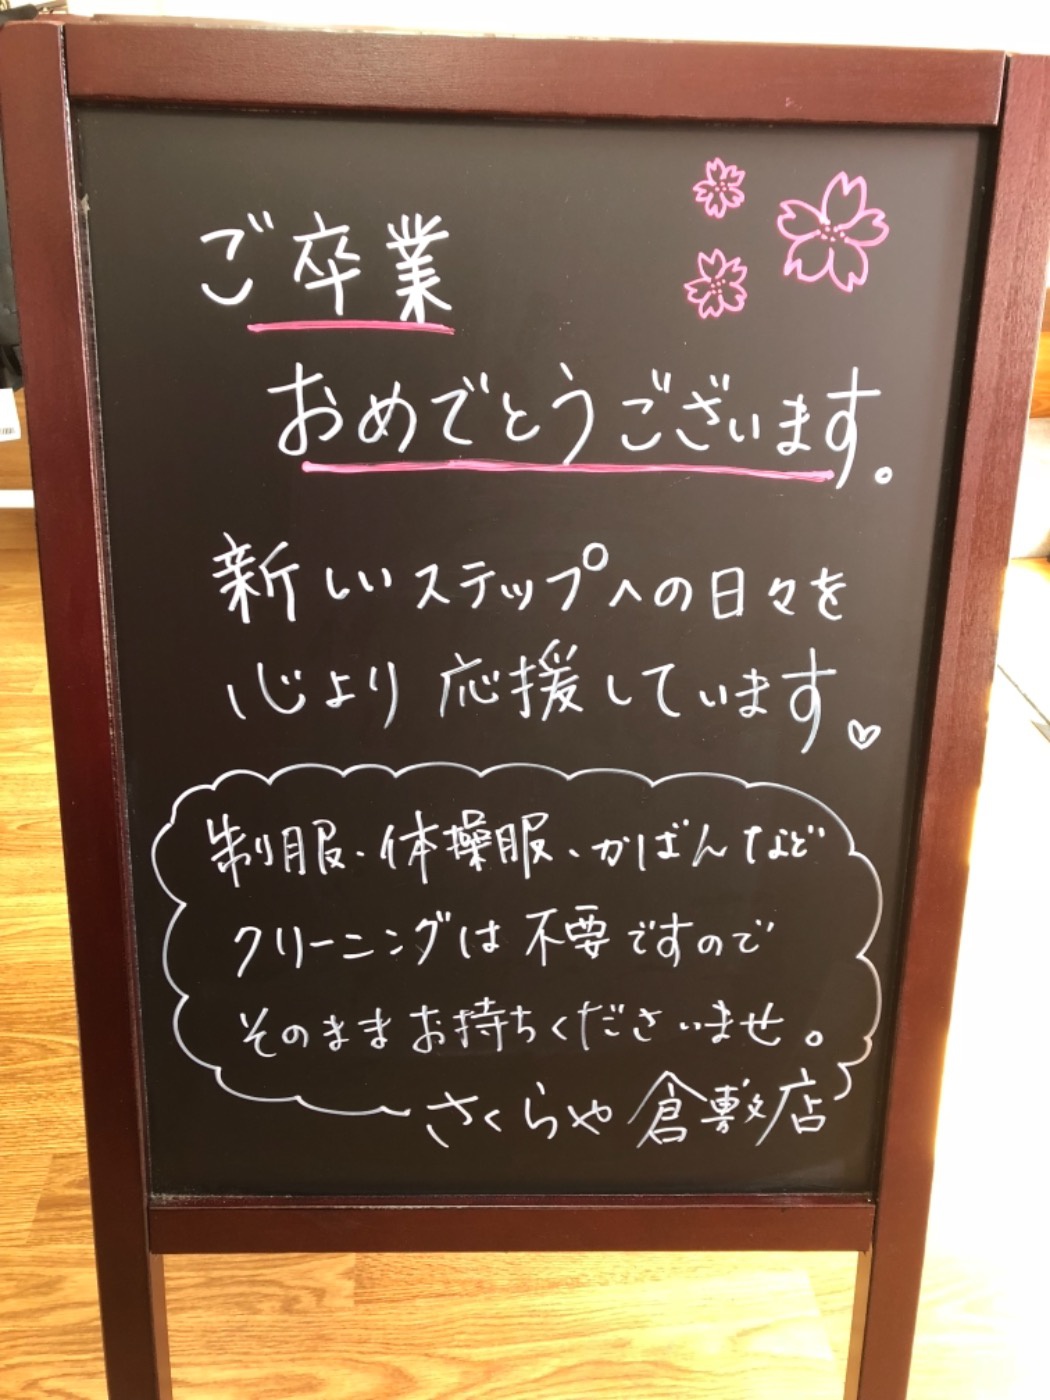 ご卒業
おめでとうございます。
新しいステップへの日々を
心より応援しています♡
制服、体操服、かばんなど
クリーニングは不要ですので
そのままお持ちくださいませ。
さくらや倉敷店